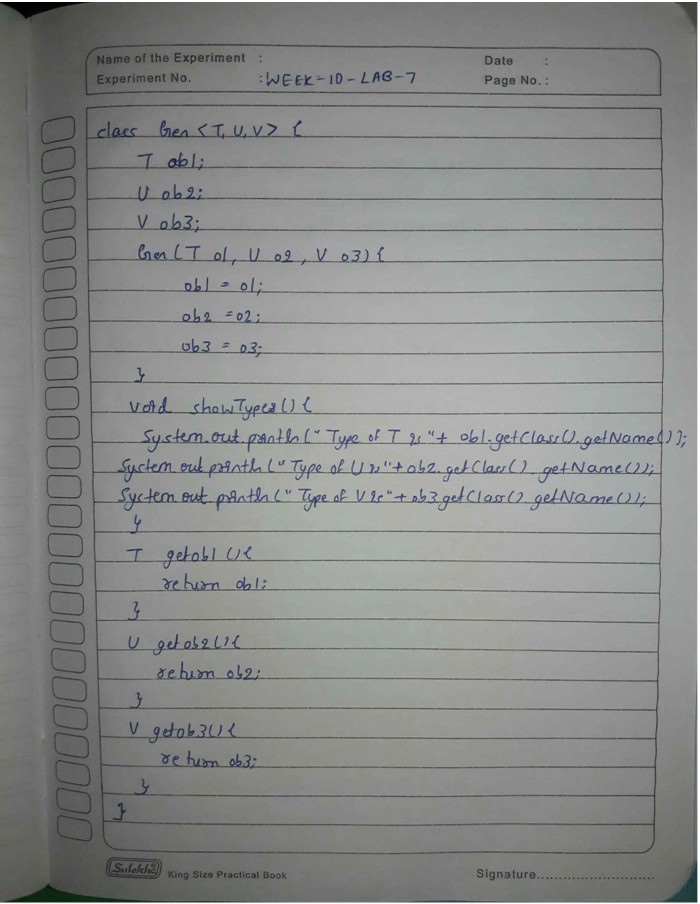 Name of the Experiment :
Date :
Experiment No. : WEEK-10-LAB-7
Page No. :
class Gen <T, U, V> {
T ob1;
U ob2;
V ob3;
Gen (T o1, U o2, V o3) {
ob1 = o1;
ob2 = o2;
ob3 = o3;
}
void showTypes() {
System.out.println (" Type of T is "+ ob1.getClass().getName());
System.out println (" Type of U is"+ ob2.getClass().getName());
System.out.println (" Type of V is"+ ob3.getClass().getName());
}
T getob1 () {
return ob1;
}
U getob2() {
return ob2;
}
V getob3() {
return ob3;
}
}
Sulekha King Size Practical Book
Signature...........................